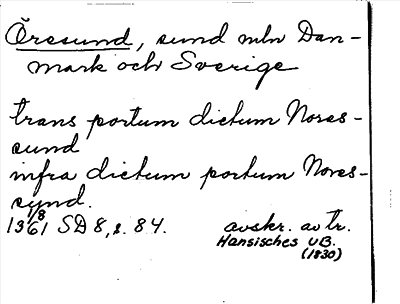 Öresund, sund mln Dan-
mark och Sverige
trans portum dictum Nores-
sund
infra dictum portum Nores-
synd.
1/8
1361 SD 8, s. 84. avskr. av tr.
Hansisches UB.
(1830)